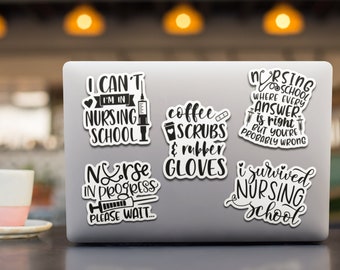 I CAN'T
I'M IN
NURSING
SCHOOL
coffee
SCRUBS
& rubber
GLOVES
nursing
SCHOOL
WHERE EVERY
ANSWER
is right
BUT YOU'RE
PROBABLY WRONG
Nurse
IN PROGRESS
PLEASE WAIT...
i survived
NURSING
school